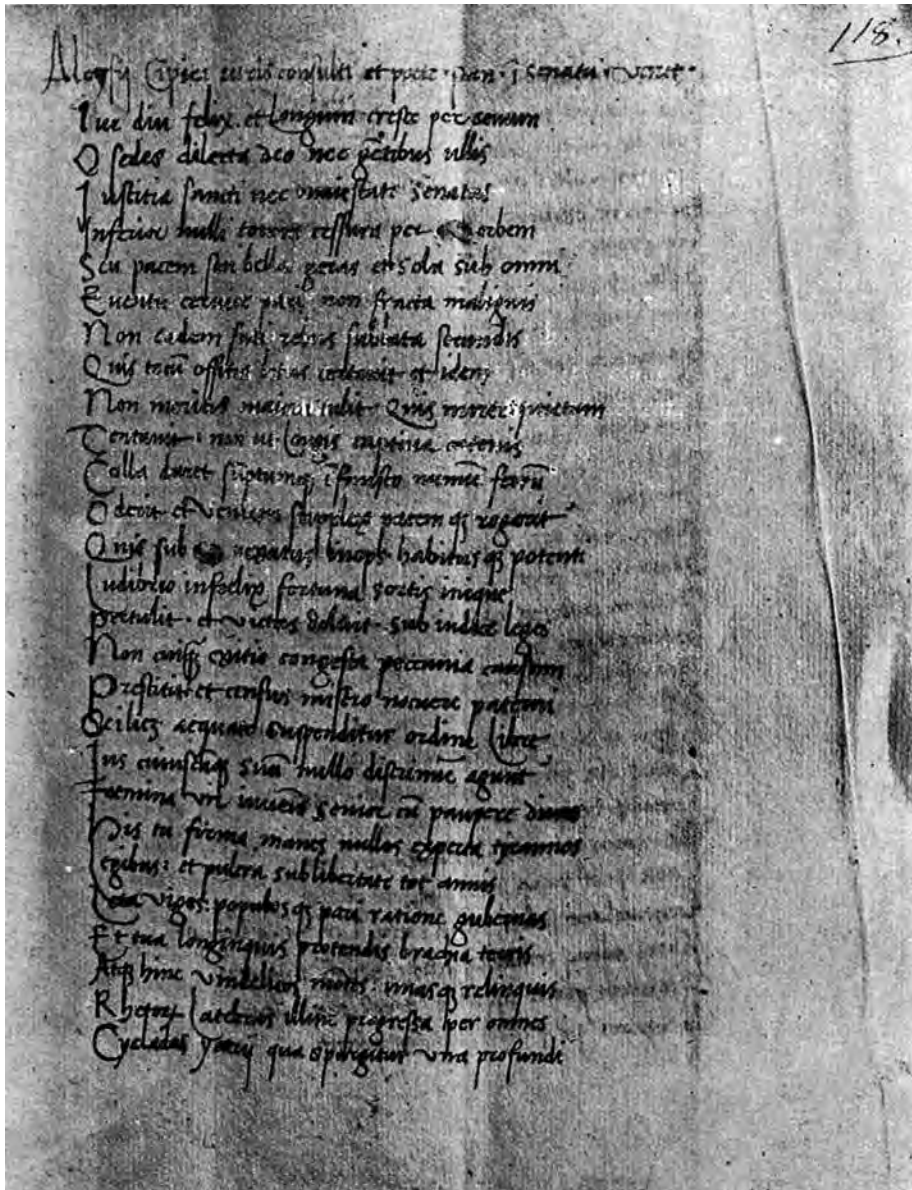 118.
Aloysij Cipici iuris consulti et poete ⋅ ĩ senatũ ⋅ Venet ⋅
Iue diu felix et longum cresce per aeuum
O sedes dilecta deo nec gẽtibus ullis
Iustitia sancti nec maiestate senatus
Inferior nulli totum cessura per orbem
Seu pacem seu bella geras en sola sub omni
Euentu ceruice pari non fracta malignis
Non eadem fueris rebus sublata secundis
Quis tecũ officijs certauit et idem
Non meritis maiora tulit Quis marte quietam
Tentauit ⋅ non ut longis captiua catenis
Colla daret sũptumq; ĩ funesto ferrũ
Oderit et ueniens supplex pacem q; rogarit
Quis sub te inops habitus q; potenti
Ludibrio infelix fortuna sortis inique
Pertulit ⋅ et uictus doluit ⋅ sub iudice leges
Non congesta peccunia causam
Prestitit et census nostro nocuere patroni
Scilicz aequato suspenditur ordine libre
Ius cuiuscũq; suũ nullo discrimine agunt
Foemina uir iuuenis senior cũ paupere diues
His tu firma manes nullos experta tyrannos
Legibus ⋅ et pulcra sub libertate tot annis
Leta uiges populos q; pari ratione gubernas
Et tua longinquis protendis brachia terris
Atq; hinc Vindelicos montes ⋅ imas q; relinquis
Rhetor latebras illinc progressa per omnes
Cycladas Ionij qua spargitur unda profundi